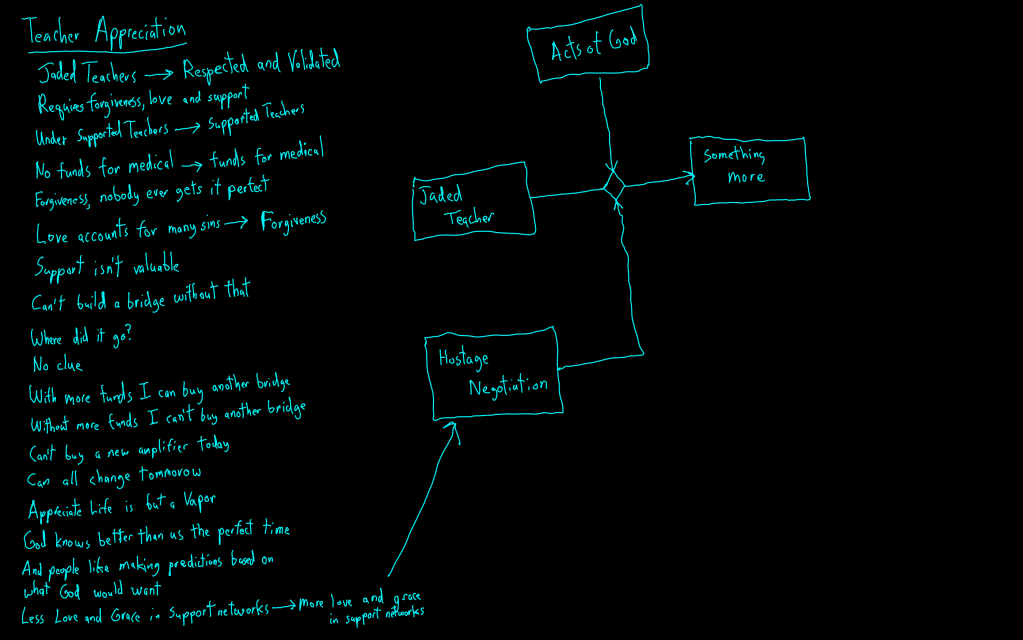 Teacher Appreciation
Jaded Teachers → Respected and Validated
Requires forgiveness, love and support
Under Supported Teachers → Supported Teachers
No funds for medical → funds for medical
Forgiveness, nobody ever gets it perfect
Love accounts for many sins → Forgiveness
Support isn't valuable
Can't build a bridge without that
Where did it go?
No clue
With more funds I can buy another bridge
Without more funds I can't buy another bridge
Can't buy a new amplifier today
Can all change tommorow
Appreciate Life is but a Vapor
God knows better than us the perfect time
And people like making predictions based on
what God would want
Less Love and Grace in Support networks → more love and grace
in support networks
Acts of God
Something
more
Jaded
Teacher
Hostage
Negotiation